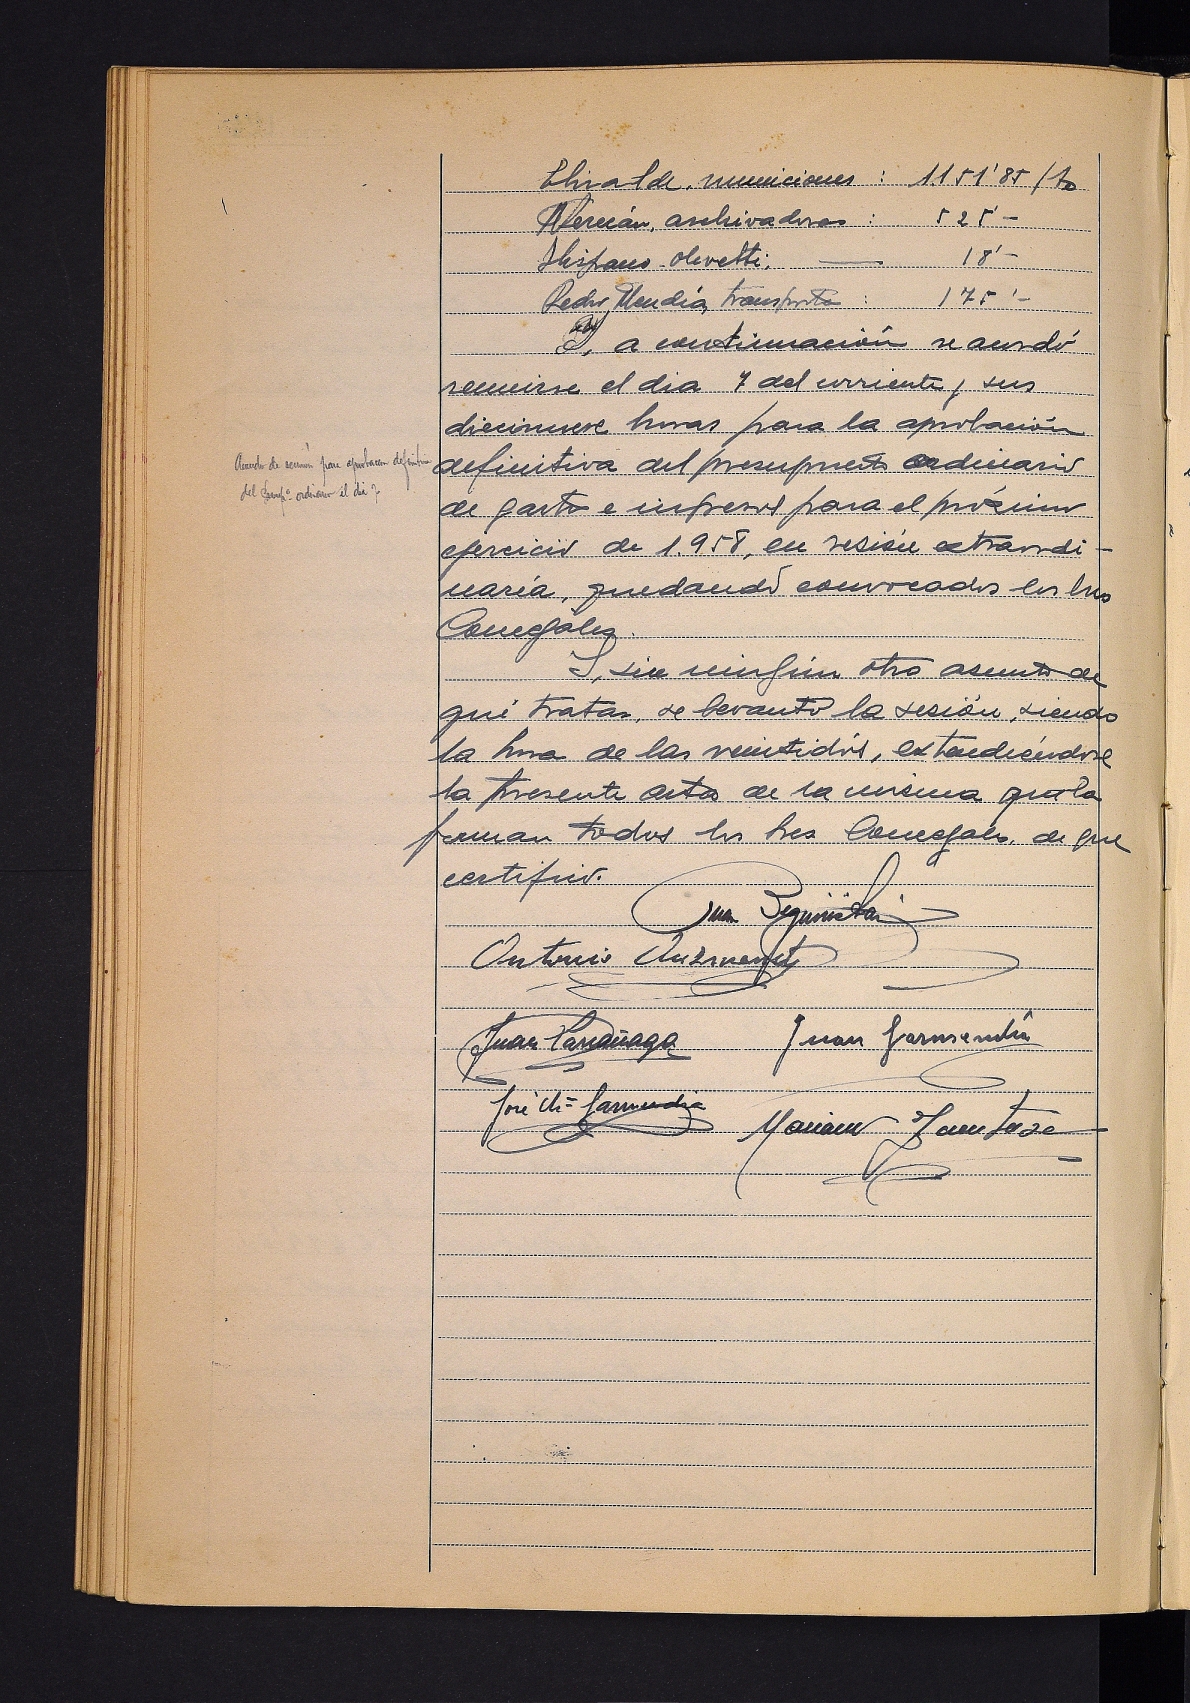 Elizalde, municiones : 1.151'85 pts
Mercián, archivadores : 525'-
Hispano-olivetti, — 18'-
Pedro Mendía, transporte : 175'-
Y, a continuación se acordó
reunirse el dia 7 del corriente, sus
diecinueve horas para la aprobación
Acuerdo de reunión para aprobacion definitiva
del Presupº ordinario el dia 7.
definitiva del presupuesto ordinario
de gastos e ingresos para el próximo
ejercicio de 1.958, en sesión extraordi-
naria, quedando convocados los tres
Concejales.
Y, sin ningún otro asunto de
qué tratar, se levantó la sesión, siendo
la hora de las veintidós, extendiéndose
la presente acta de la misma que la
firman todos los tres Concejales, de que
certifico.
Juan Beguiristain
Antonio
Juan Larrañaga Juan Garmendia
José Mª Garmendia Mariano